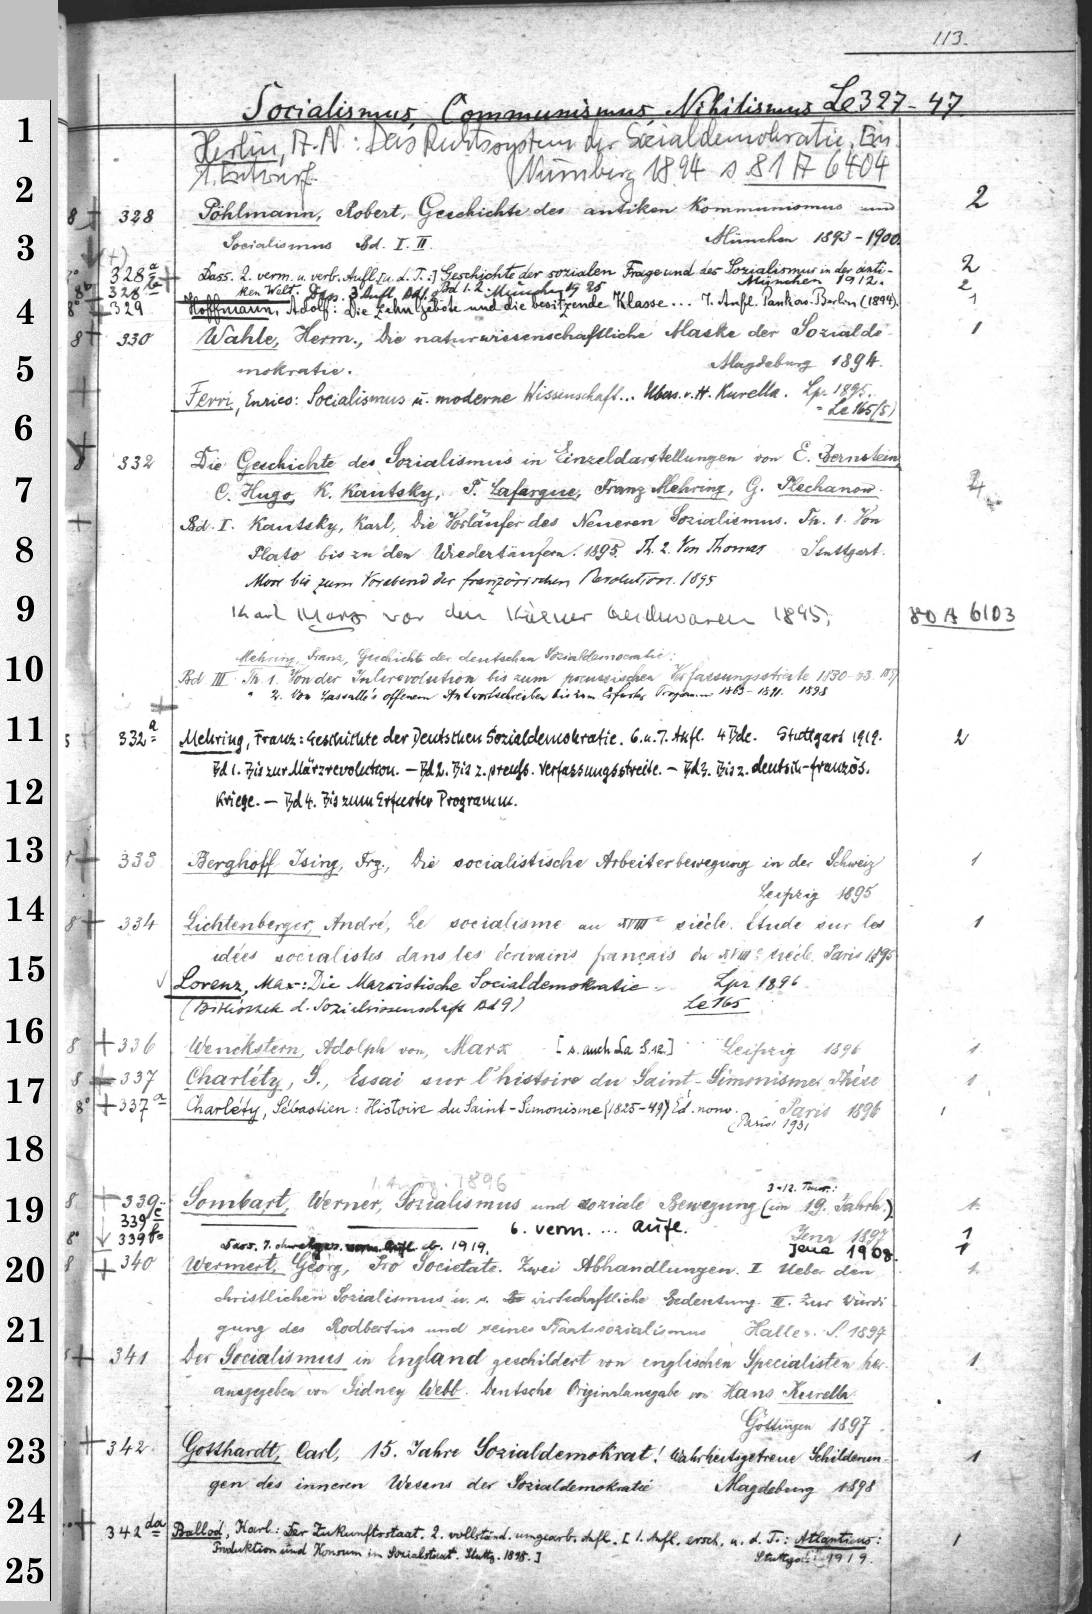 113.
Socialismus, Communismus, Nihilismus Le 327-47
1
Herlin, A. N.: Das Rechtssystem der Socialdemokratie. Ein
1. Entwurf. Nürnberg 1894 s. 81 A 6404
2
8 + 328 Pöhlmann, Robert, Geschichte des antiken Kommunismus und 2
3
Socialismus Bd. I. II. München 1893-1900.
(+)
328a Dass. 2. verm. u. verb. Aufl. [u. d. T.:] Geschichte der sozialen Frage und des Sozialismus in der anti- 2
328b ken Welt. Bd 1. 2. München 1912. 2
Dass. 3. Aufl. Bd 1. 2. München 1925
4
8 + 329 Hoffmann, Adolf: Die zehn Gebote und die besitzende Klasse... 7. Aufl. Pankow-Berlin (1894). 1
8 + 330 Wahle, Herm., Die naturwissenschaftliche Maske der Sozialde- 1
5
mokratie. Magdeburg 1894.
Ferri, Enrico: Socialismus u. moderne Wissenschaft... Uebers. v. H. Kurella. Lpz. 1895.
= Le 165 (8)
6
8 332 Die Geschichte des Sozialismus in Einzeldarstellungen von E. Bernstein,
7
C. Hugo, K. Kautsky, P. Lafargue, Franz Mehring, G. Plechanow.
Bd. I. Kautsky, Karl, Die Vorläufer des Neueren Sozialismus. Th. 1. Von
8
Plato bis zu den Wiedertäufern. 1895 Th. 2. Von Thomas Stuttgart.
More bis zum Vorabend der französischen Revolution. 1895
9
Karl Marx vor den Kölner Geschworenen 1895, 80 A 6103
10
Mehring, Franz, Geschichte der deutschen Sozialdemocratie:
Bd III Th. 1. Von der Julirevolution bis zum preussischen Verfassungsstreite 1830-63. 1897
" 2. Von Lassalle's offenem Antwortschreiben bis zum Erfurter Programm 1863-1891. 1898
11
332a Mehring, Franz: Geschichte der Deutschen Sozialdemokratie. 6. u. 7. Aufl. 4 Bde. Stuttgart 1919. 2
Bd 1. Bis zur Märzrevolution. — Bd 2. Bis z. preuss. Verfassungsstreite. — Bd 3. Bis z. deutsch-französ.
12
Kriege. — Bd 4. Bis zum Erfurter Programm.
13
+ 333 Berghoff Ising, Frz., Die socialistische Arbeiterbewegung in der Schweiz 1
Leipzig 1895
14
8 + 334 Lichtenberger, André, Le socialisme au XVIIIe siècle. Étude sur les 1
15
idées socialistes dans les écrivains français du XVIIIe siècle. Paris 1895
Lorenz, Max: Die Marxistische Socialdemokratie. Lpz 1896
(Bibliothek d. Sozialwissenschaft Bd 9) Le 165
16
8 + 336 Wenckstern, Adolph von, Marx [s. auch La S. 12.] Leipzig 1896 1
17
8 337 Charléty, S., Essai sur l'histoire du Saint-Simonisme. Thèse 1
Paris 1896
8° + 337a Charléty, Sébastien: Histoire du Saint-Simonisme (1825-49) Éd. nouv. 1
Paris 1931
18
1896
19
8 + 339 Sombart, Werner, Sozialismus und soziale Bewegung (im 19. Jahrh.) 1
339c 6. verm. ... Aufl. Jena 1897 1
339b Dass. 7. 1919. Jena 1908. 1
20
8 + 340 Wermert, Georg, Pro Societate. Zwei Abhandlungen. I Ueber den 1
christlichen Sozialismus u. s. wirtschaftliche Bedeutung. II. Zur Würdi
21
gung des Rodbertus und seines Staatssozialismus Halle a. S. 1897
+ 341 Der Socialismus in England geschildert von englischen Specialisten her- 1
22
ausgegeben von Sidney Webb. Deutsche Originalausgabe von Hans Kurella.
Göttingen 1897.
23
+ 342 Gotthardt, Carl, 15. Jahre Sozialdemokrat! Wahrheitsgetreue Schilderun- 1
gen des inneren Wesens der Sozialdemokratie Magdeburg 1898
24
+ 342da Ballod, Karl: Der Zukunftsstaat. 2. vollständ. umgearb. Aufl. [1. Aufl. ersch. u. d. T.: Atlanticus: 1
25
Produktion und Konsum im Sozialstaat. Stuttg. 1898.] Stuttgart 1919.